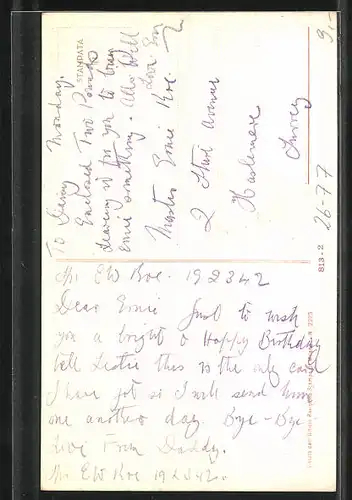 To Denny Monday.
Enclosed Two Pounds
Leaving it for you to buy
Ernie something. All Well
Love Ern
Master Ernie Roe.
2 Avenue
Haslemere
Surrey
STAMPATA
9,-
26-77
813-2
Mr EW Roe. 192342
Dear Ernie Just to wish
you a bright & Happy Birthday
tell Leslie this is the only card
I have got so I will send him
one another day. Bye-Bye
love From Daddy.
Mr EW Roe 192342.